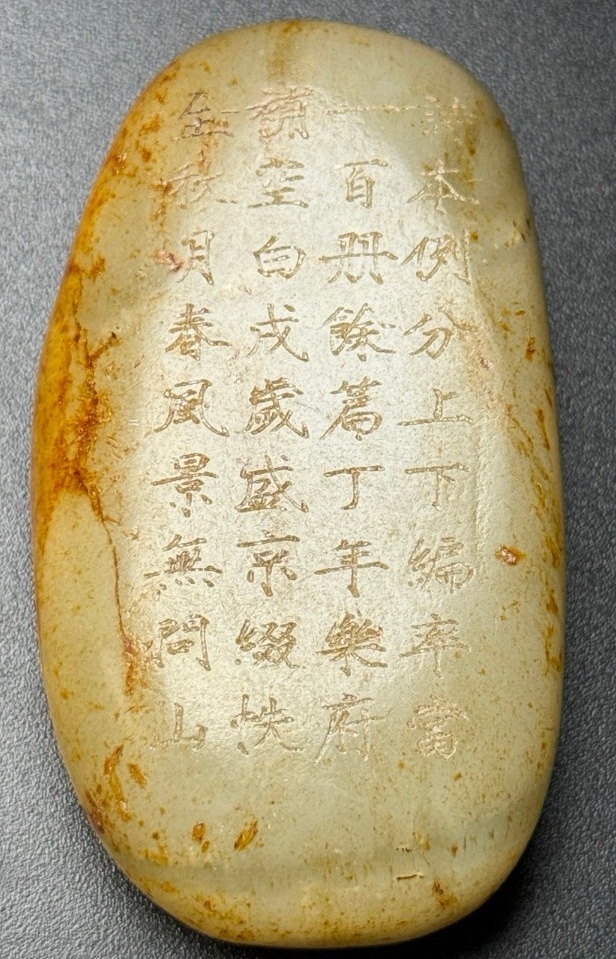 詩本例分上下編卒當
一百册餘篇丁年樂府
補空白戌歲盛京綴帙
秋月春風景無問山